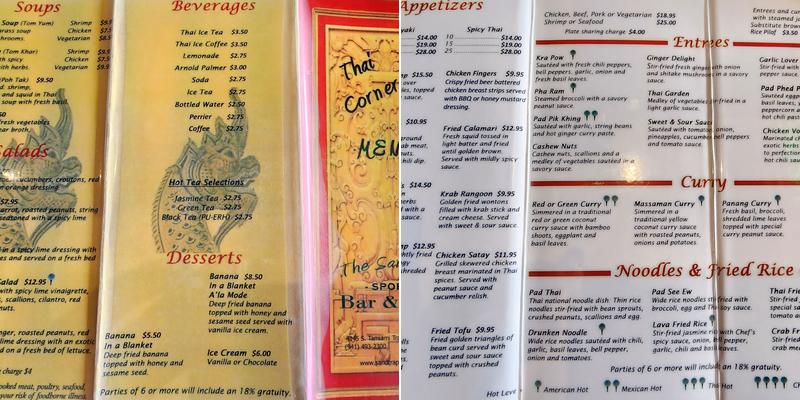 Soups
Soup (Tom Yum) Shrimp
grass soup Chicken
shrooms. Vegetarian
(Tom Khar) Shrimp
with spicy Chicken
with herbs. Vegetarian
(Poh Tak) $9.50
d: shrimp,
and squid in Thai
soup with fresh basil.
fresh vegetables
ear broth.
Salads
toes, cucumbers, croutons, red
n orange dressing
$7.95
carrot, roasted peanuts, string
seasoned with a spicy lime
in a spicy lime dressing with
es and served on a fresh bed
Salad $12.95
with spicy lime vinaigrette,
, scallions, cilantro, red
nuts.
inger, roasted peanuts, red
lime dressing with an exotic
d on a fresh bed of lettuce.
charge $4
cooked meat, poultry, seafood,
your risk of foodborne illness.
Beverages
Thai Ice Tea $3.50
Thai Ice Coffee $3.50
Lemonade $2.75
Arnold Palmer $3.00
Soda $2.75
Ice Tea $2.75
Bottled Water $2.50
Perrier $2.75
Coffee $2.75
Hot Tea Selections
Jasmine Tea $2.75
Green Tea $2.75
Black Tea (PU-ERH) $2.75
Desserts
Banana $8.50
In a Blanket
A'la Mode
Deep fried banana
topped with honey and
sesame seed served with
vanilla ice cream.
Banana $5.50
In a Blanket
Deep fried banana
topped with honey and
sesame seed.
Ice Cream $6.00
Vanilla or Chocolate
Parties of 6 or more will include an 18% gratuity.
Thai
Corner
MEN
The Sa
- SPO
Bar &
S. Tamiami Tr
(941) 493-2300
www.sandtrap
Appetizers
yaki Spicy Thai
$14.00 10 $14.00
$19.00 15 $19.00
$28.00 25 $28.00
mp $15.50
Chicken Fingers $9.95
Crispy fried beer battered
chicken breast strips served
with BBQ or honey mustard
dressing.
$10.95
Fried Calamari $12.95
Fresh squid tossed in
light batter and fried
until golden brown.
Served with mildly spicy
sauce.
$14.50
Krab Rangoon $9.95
Golden fried wontons
filled with krab stick and
cream cheese. Served
with sweet & sour sauce.
mp $12.95
Chicken Satay $11.95
Grilled skewered chicken
breast marinated in Thai
spices. Served with
peanut sauce and
cucumber relish.
Fried Tofu $9.95
Golden fried triangles of
bean curd served with
sweet and sour sauce
topped with crushed
peanuts.
Hot Leve
Chicken, Beef, Pork or Vegetarian $18.95
Shrimp or Seafood $25.00
Plate sharing charge $4.00
Entrees and cur
with steamed ja
Substitute brown
Rice Pilaf $3.50
Entrees
Kra Pow
Sautéed with fresh chili peppers,
bell peppers, garlic, onion and
fresh basil leaves.
Pha Ram
Steamed broccoli with a savory
peanut sauce.
Pad Pik Khing
Sautéed with garlic, string beans
and hot ginger curry paste.
Cashew Nuts
Cashew nuts, scallions and a
medley of vegetables sautéed in a
savory sauce.
Ginger Delight
Stir-fried fresh ginger with onion
and shitake mushrooms in a savory
sauce.
Thai Garden
Medley of vegetables stir-fried in a
light sauce.
Sweet & Sour Sauce
Sautéed with tomato, onion,
pineapples, cucumber, bell pepper
and tomato sauce.
Garlic Lover
Stir-fried with
pepper in
Pad Phed P
Sautéed
hot chili sa
Chicken Vo
Marinated ch
exotic herbs
to perfection
hot chili sauc
Curry
Red or Green Curry
Simmered in a
traditional red
or green coconut
curry sauce with bamboo
shoots, eggplant and
basil leaves.
Massaman Curry
Simmered in a
traditional yellow
coconut curry sauce
with roasted peanuts,
onions and potatoes.
Panang Curry
Fresh basil, broccoli,
shredded lime leaves
topped with special
curry peanut sauce.
Noodles & Fried Rice
Pad Thai
Thai national noodle dish: Thin rice
noodles stir-fried with bean sprouts,
crushed peanuts, scallions and egg.
Drunken Noodle
Wide rice noodles sautéed with chili,
garlic, basil leaves, bell pepper,
onion and tomatoes.
Pad See Ew
Wide rice noodles stir-fried with
broccoli, egg and Thai soy sauce.
Lava Fried Rice
Stir-fried jasmine rice with Chef's
spicy sauce, onion, bell pepper,
garlic, chili and basil leaves.
Thai Frie
Stir-fried
special sa
tomato a
Crab Fr
Stir-fried
meat,
Parties of 6 or more will include an 18% gratuity.
American Hot Mexican Hot Thai Hot